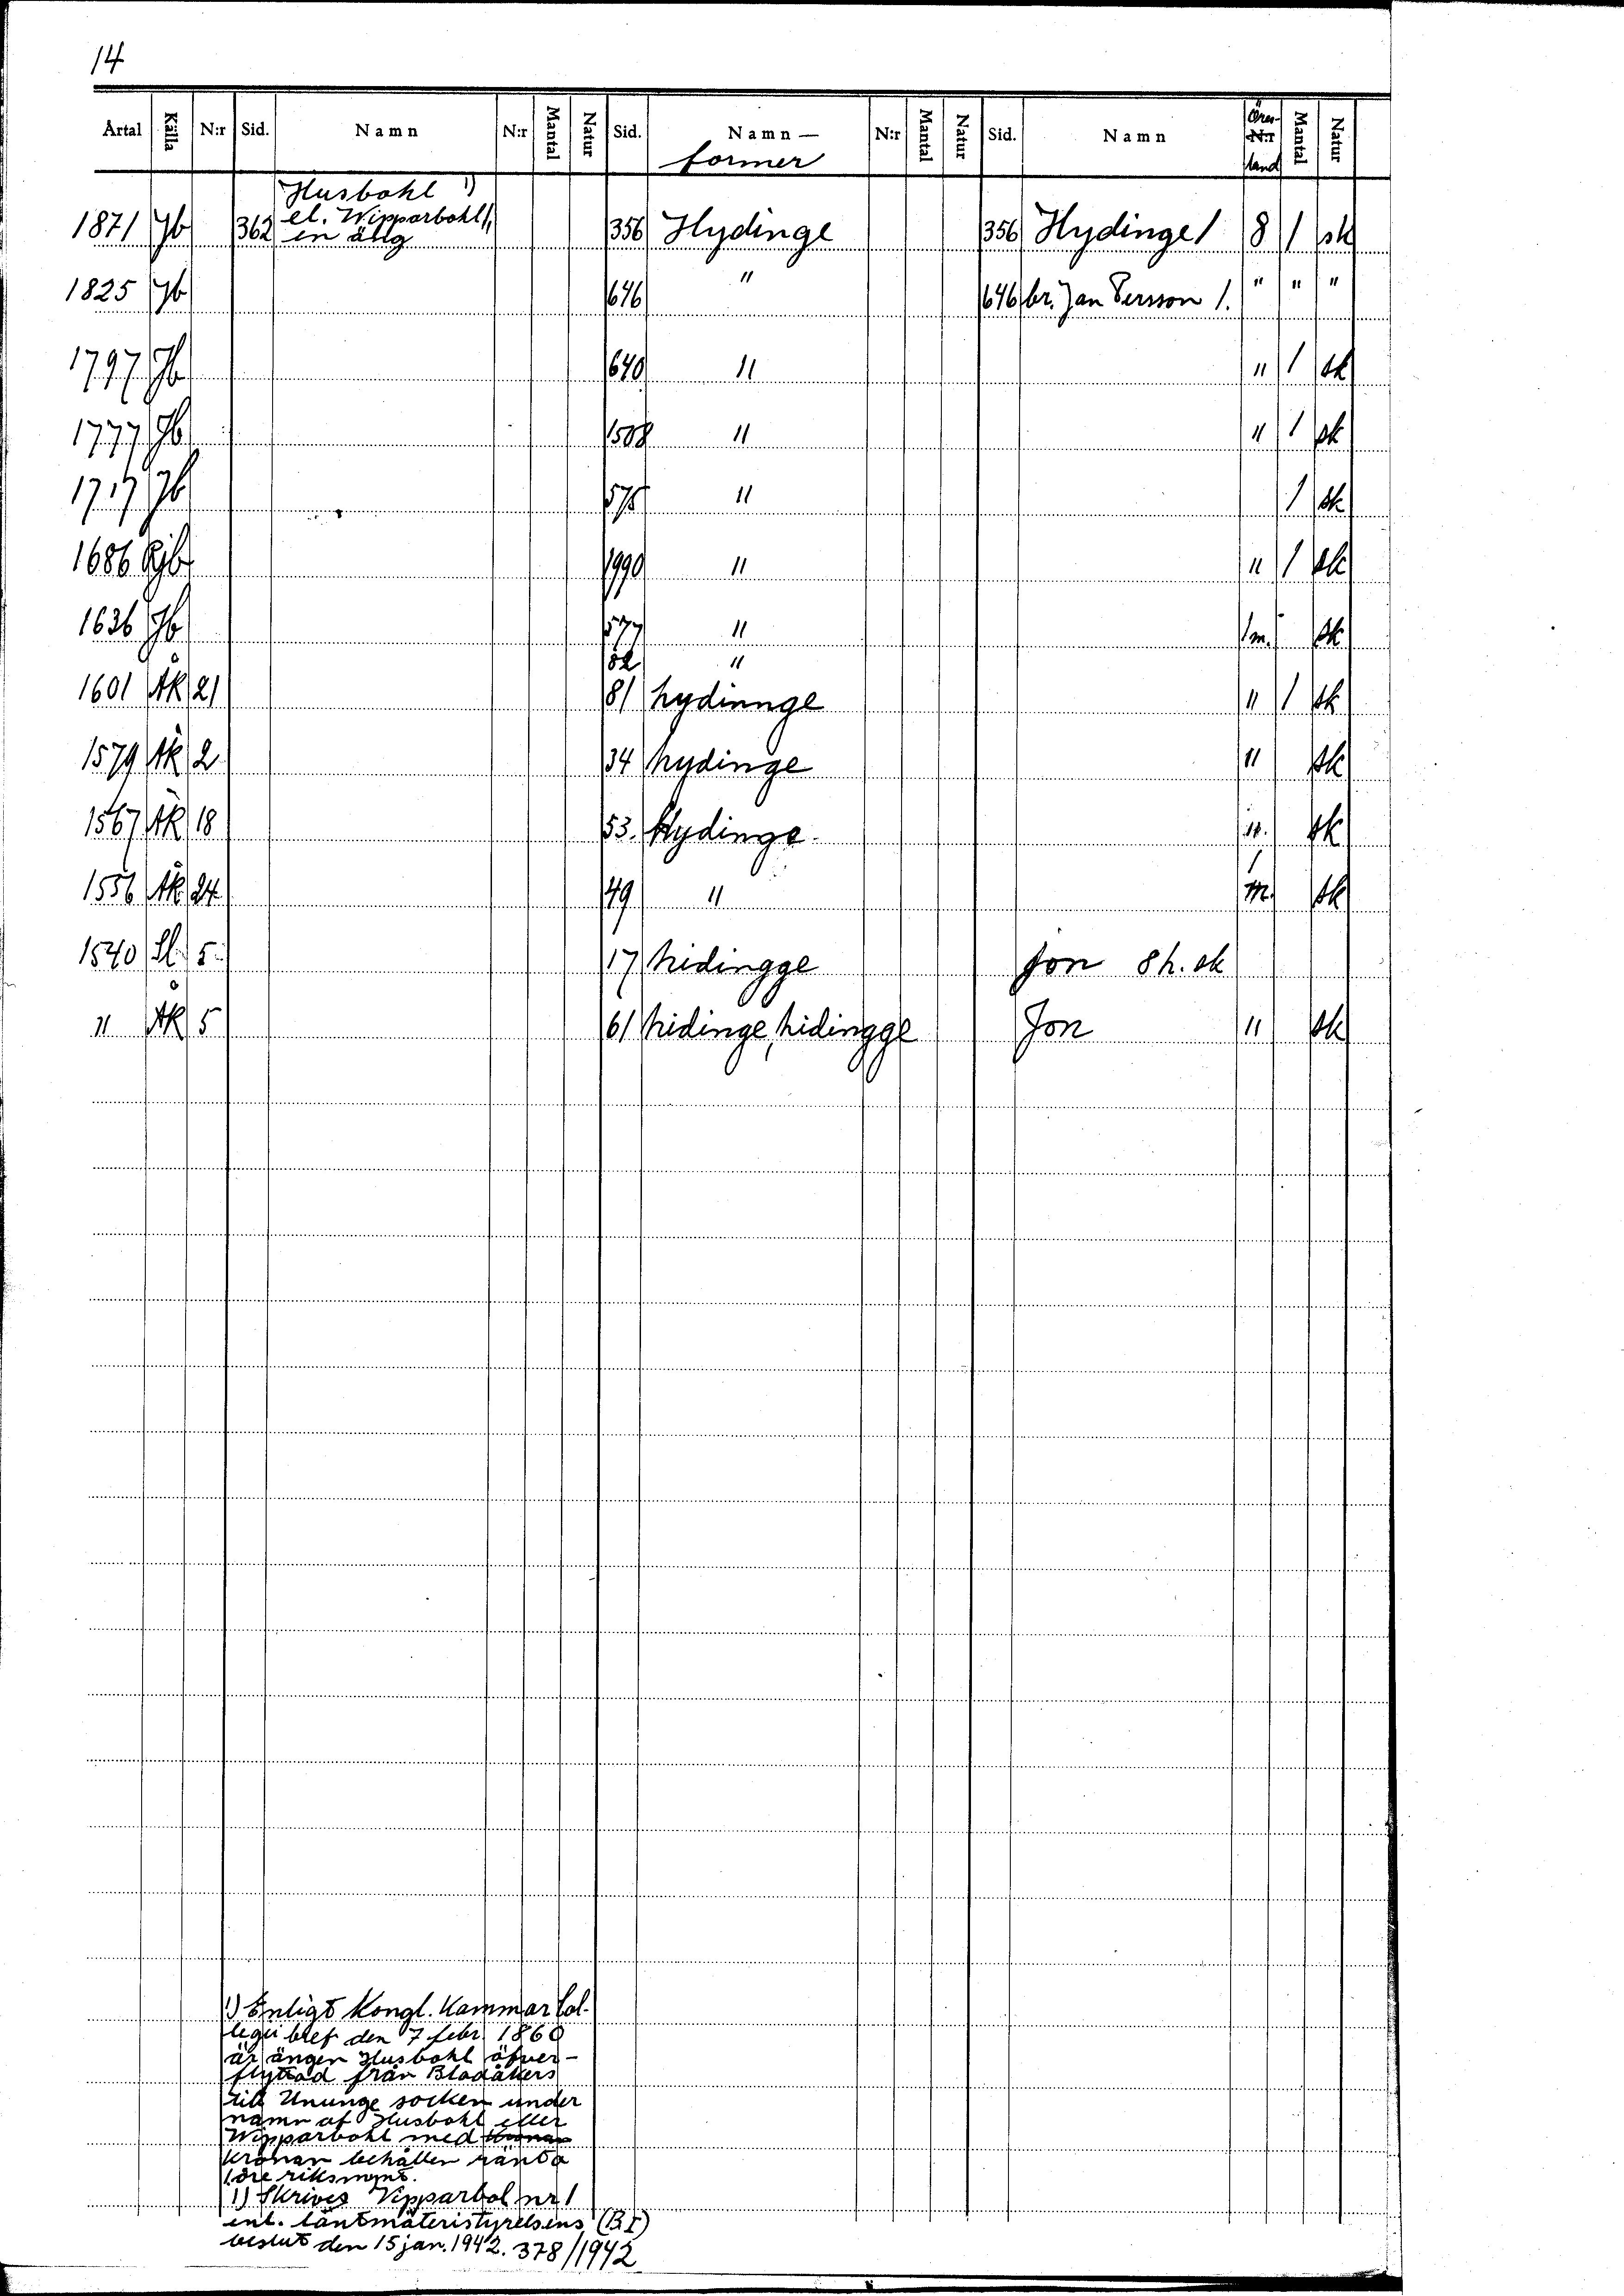 14
Årtal Källa N:r Sid. Namn N:r Mantal Natur Sid. Namn— N:r Mantal Natur Sid. Namn Öres- N:r Mantal Natur
former land
Husbohl 1)
el. Wipparbohl,
1871 Jb 362 en äng 356 Hydinge 356 Hydinge 1 8 1 sk
1825 Jb 646 " 646 br. Jan Persson 1. " " "
1797 Jb 640 " " 1 sk
1777 Jb 508 " " 1 sk
1717 Jb 575 " 1 sk
1686 Rjb 1990 " " 1 sk
1636 Jb 577 " 1m. sk
82 "
1601 ÄK 21 81 hydinnge " 1 sk
1579 ÄK 2 34 hydinge " sk
1567 ÄK 18 53. Hydinge " sk
1556 ÄK 24 49 " 1 m. sk
1540 Sl. 5 17 hidingge Jon 8 h. sk
" ÅK 5 61 hidinge, hidingge Jon " sk
1) Enligt Kongl. Kammar Col-
legii bref den 7 febr. 1860
är ängen Husbohl öfver-
flyttad från Bladåkers
till Ununge socken under
namn af Husbohl eller
Wipparbohl med Kronan
Kronan behållen ränta
1 öre riksmynt.
1) Skrives Vipparbol nr 1
enl. lantmäteristyrelsens (BI)
beslut den 15 jan. 1942. 378/1942